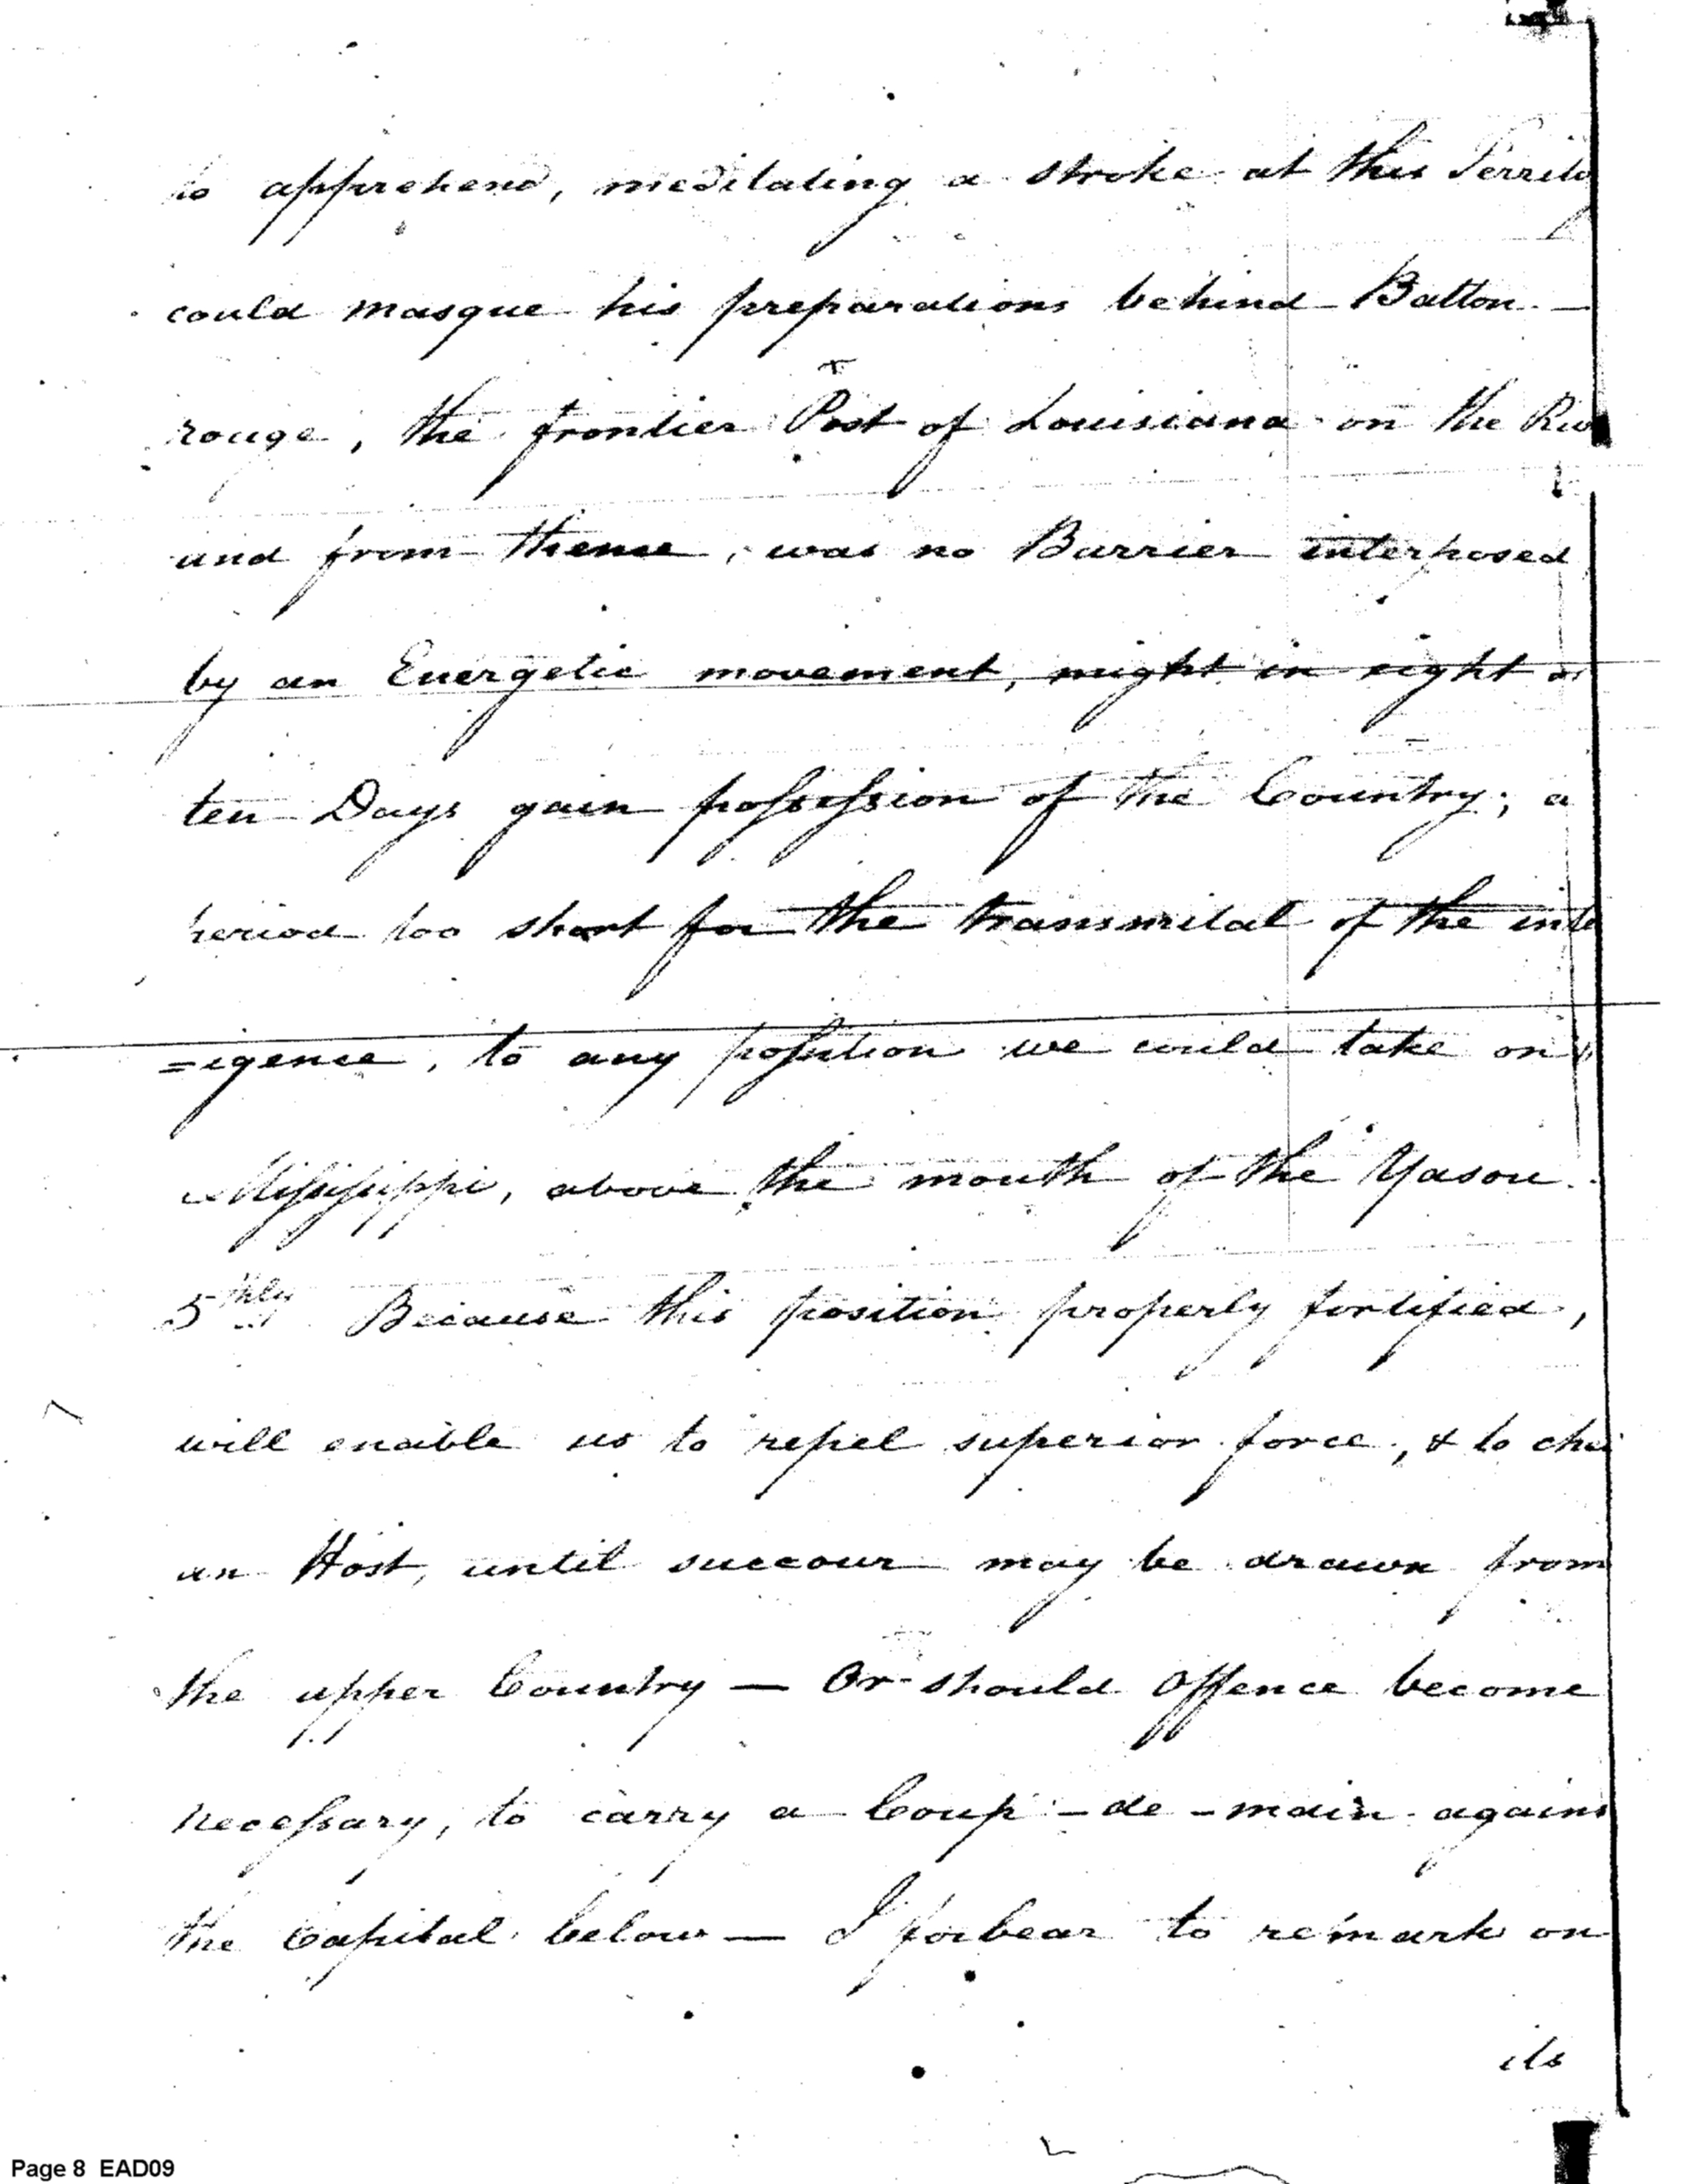 to apprehend, meditating a stroke at this Territo
could masque his preparations behind Batton —
rouge, the frontier Post of Louisiana on the Riv
and from thence, was no Barrier interposed
by an Energetic movement, might in eight or
ten Days gain possession of the Country; a
period too short for the transmital of the inte
=igence, to any position we could take on
Mississippi, above the mouth of the Yasou.
5thly Because this position properly fortified,
will enable us to repel superior force, & to che
an Host, until succour may be drawn from
the upper Country — Or should Offence become
necessary, to carry a Coup-de-main agains
the Capital below — I forbear to remark on
its
Page 8 EAD09